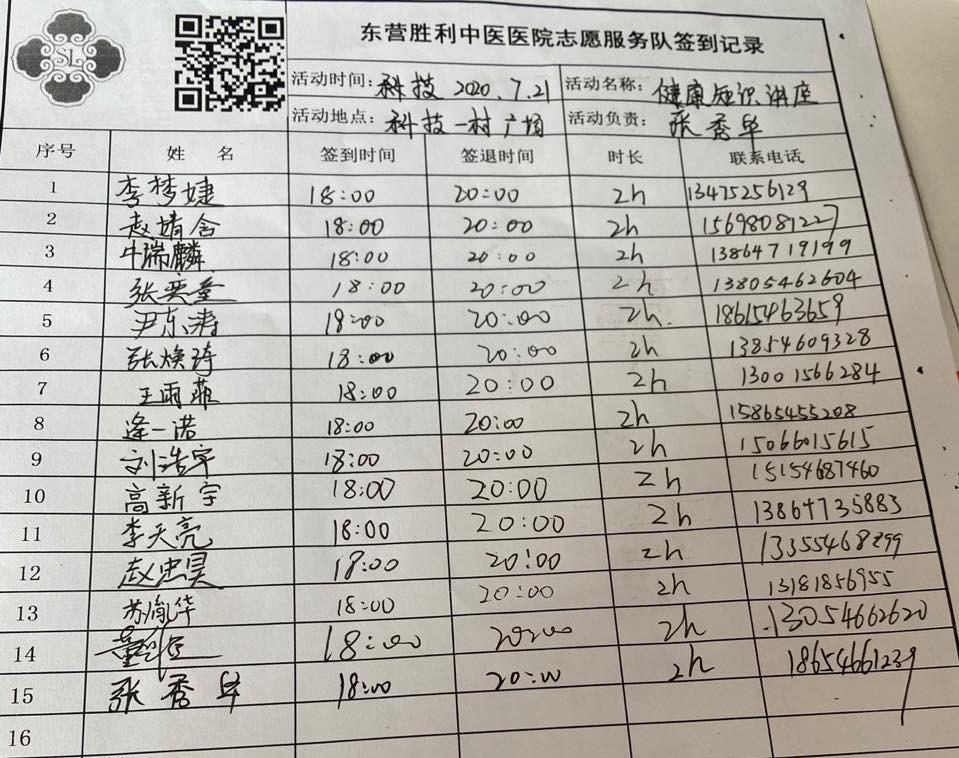 SL
东营胜利中医医院志愿服务队签到记录
活动时间: 科技 2020.7.21 活动名称: 健康知识讲座
活动地点: 科技一村广场 活动负责: 张秀华
序号 姓 名 签到时间 签退时间 时长 联系电话
1 李梦婕 18:00 20:00 2h 13475256129
2 赵靖含 18:00 20:00 2h 15698081227
3 牛瑞麟 18:00 20:00 2h 13864719199
4 张奕童 18:00 20:00 2h 13805462604
5 尹东涛 18:00 20:00 2h. 18615463659
6 张焕琦 18:00 20:00 2h 13854609328
7 王雨菲 18:00 20:00 2h 13001566284
8 逄一诺 18:00 20:00 2h 15865455208
9 刘浩宇 18:00 20:00 2h 15066015615
10 高新宇 18:00 20:00 2h 15154687460
11 李天亮 18:00 20:00 2h 13864735883
12 赵忠昊 18:00 20:00 2h 13355468299
13 苏胤华 18:00 20:00 2h 13181856955
14 18:00 20:00 2h 13054662620
15 张秀华 18:00 20:00 2h 18654661239
16